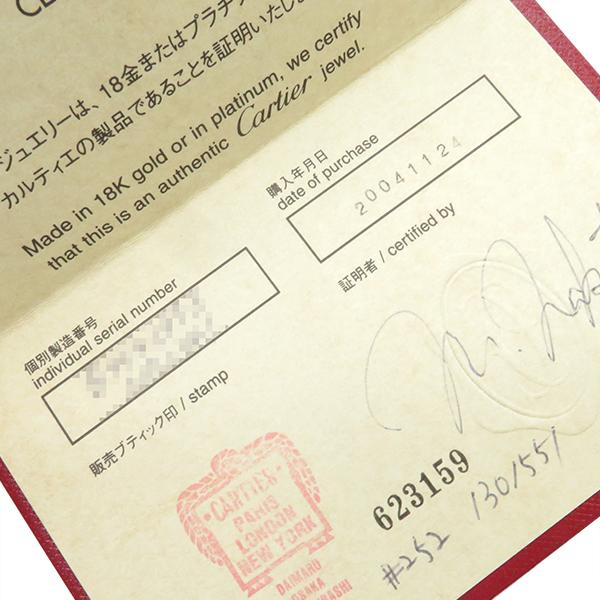 ジュエリーは、18金またはプラチナ
カルティエの製品であることを証明いたしま
Made in 18K gold or in platinum, we certify
that this is an authentic Cartier jewel.
購入年月日
date of purchase
20041124
個別製造番号
individual serial number
証明者 / certified by
販売ブティック印 / stamp
CARTIER
PARIS
LONDON
NEW YORK
DAIMARU
623159
#252 130/551